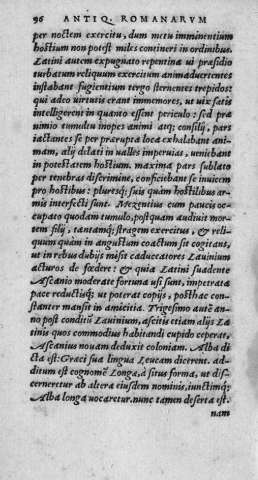 96 ANTIQ. ROMANARVM
per noctem exercitu, dum metu imminentium
hostium non potest miles contineri in ordinibus.
Latini autem expugnato repentina ui præsidio
turbatum reliquum exercitum animaduertentes
instabant fugientium tergo sternentes trepidos:
qui adeo uirtutis erant immemores, ut uix satis
intelligerent in quanto essent periculo: sed præ
nimio tumultu inopes animi atq; consilij, pars
iactantes se per prærupta loca exhalabant ani-
mam, alij dilati in ualles imperuias, ueniebant
in potestatem hostium. maxima pars sublato
per tenebras discrimine, conficiebant se inuicem
pro hostibus: pluresq; suis quàm hostilibus ar-
mis interfecti sunt. Mezentius cum paucis oc-
cupato quodam tumulo, postquam audiuit mor-
tem filij, tantamq; stragem exercitus, & reli-
quum quàm in angustum coactum sit cogitans,
ut in rebus dubijs misit caduceatores Lauinium
acturos de fœdere: & quia Latini suadente
Ascanio moderate fortuna usi sunt, impetrata
pace reductisq; ut poterat copijs, posthac con-
stanter mansit in amicitia. Trigesimo autē an-
no post conditū Lauinium, ascitis etiam alijs La
tinis quos commodius habitandi cupido ceperat,
Ascanius nouam deduxit coloniam. Alba di
cta est: Græci sua lingua Leucam dicerent. ad-
ditum est cognomē Longa, à situs forma, ut dis-
cerneretur ab altera eiusdem nominis, iunctimq;
Alba longa uocaretur. nunc tamen deserta est.
nam